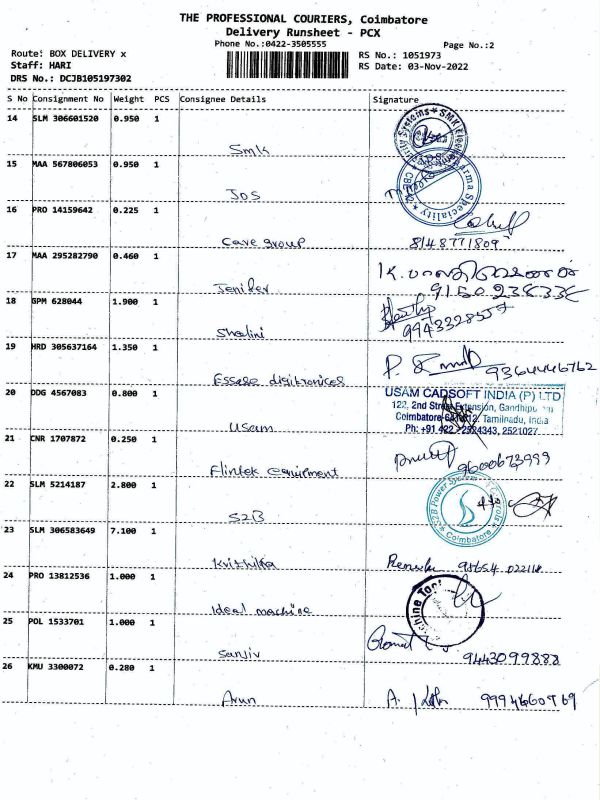 THE PROFESSIONAL COURIERS, Coimbatore
Delivery Runsheet - PCX
Phone No.:0422-3505555
Page No.:2
Route: BOX DELIVERY x
RS No.: 1051973
Staff: HARI
RS Date: 03-Nov-2022
DRS No.: DCJB105197302
S No Consignment No Weight PCS Consignee Details Signature
14 SLM 306601520 0.950 1
Smk
15 MAA 567806053 0.950 1
JOS
16 PRO 14159642 0.225 1
Care group 8148771809
17 MAA 295282790 0.460 1
Jenifer
18 GPM 628044 1.900 1
Shalini
19 HRD 305637164 1.350 1
9364446762
20 DDG 4567083 0.800 1
USAM CADSOFT INDIA (P) LTD
122, 2nd Street Extension, Gandhipu
Coimbatore Tamilnadu, India
Ph: +91 422 2521027
Usam
21 CNR 1707872 0.250 1
9600673999
22 SLM 5214187 2.800 1
S2B Power System Coimbatore
S2B
23 SLM 306583649 7.100 1
Krithika Renuka
24 PRO 13812536 1.000 1
Ideal machine
25 POL 1533701 1.000 1
Sanjiv 9443099888
26 KMU 3300072 0.280 1
Arun